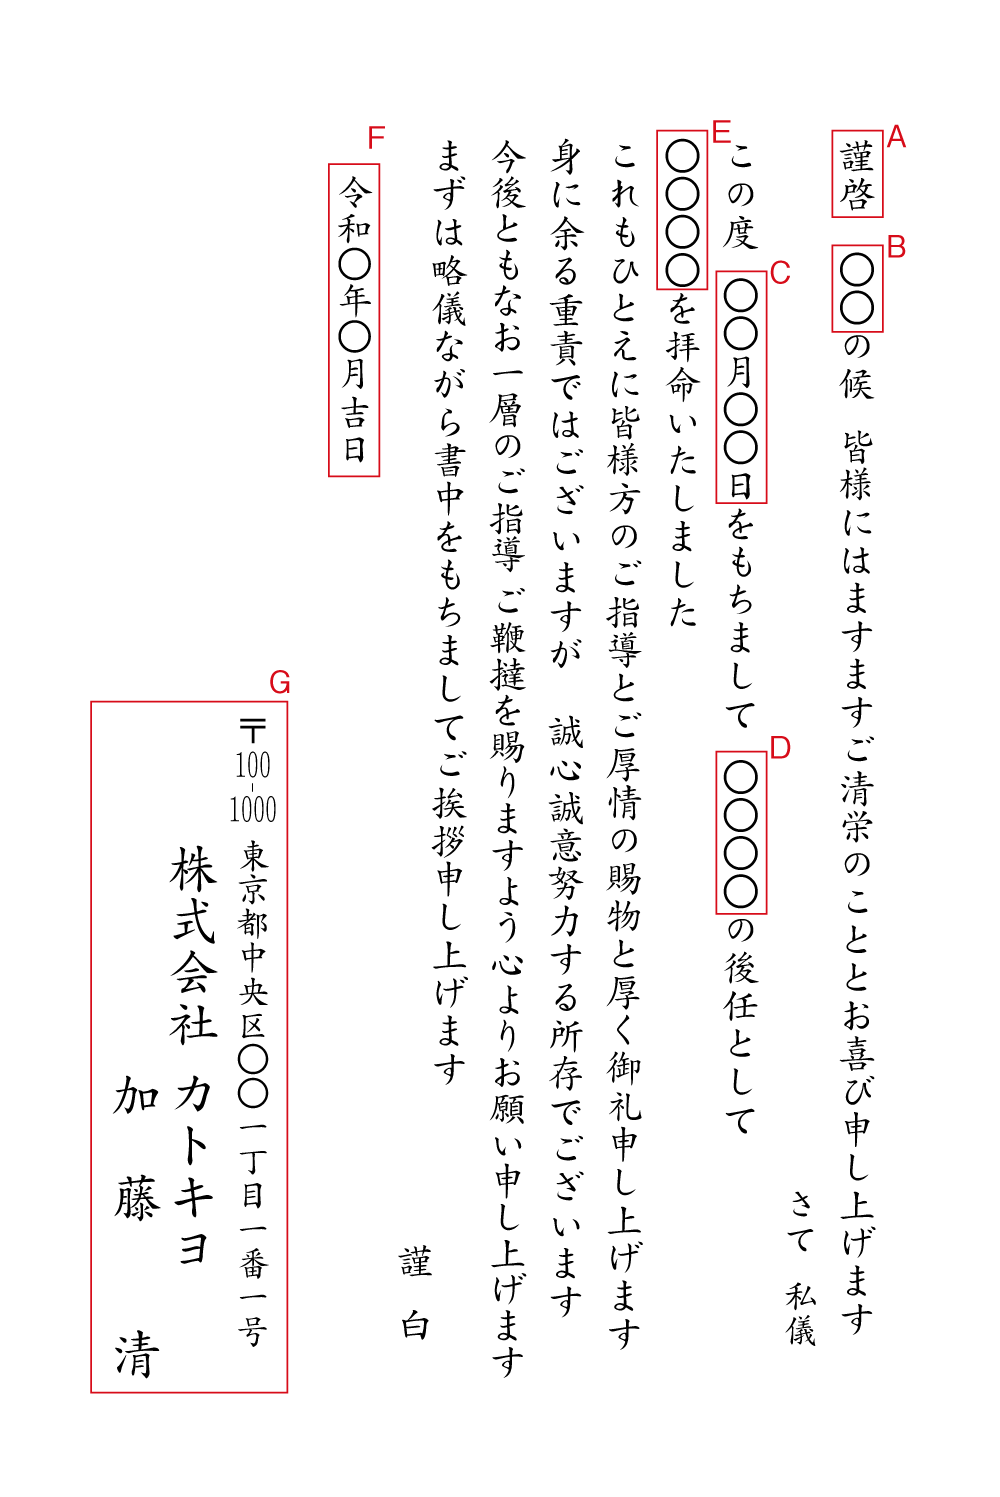 A
謹啓 B ○○の候 皆様にはますますご清栄のこととお喜び申し上げます
さて 私儀
この度 C ○○月○○日をもちまして D ○○○○の後任として
E
○○○○を拝命いたしました
これもひとえに皆様方のご指導とご厚情の賜物と厚く御礼申し上げます
身に余る重責ではございますが 誠心誠意努力する所存でございます
今後ともなお一層のご指導 ご鞭撻を賜りますよう心よりお願い申し上げます
まずは略儀ながら書中をもちましてご挨拶申し上げます
謹白
F
令和○年○月吉日
G
〒100-1000 東京都中央区○○一丁目一番一号
株式会社 カトキヨ
加藤 清